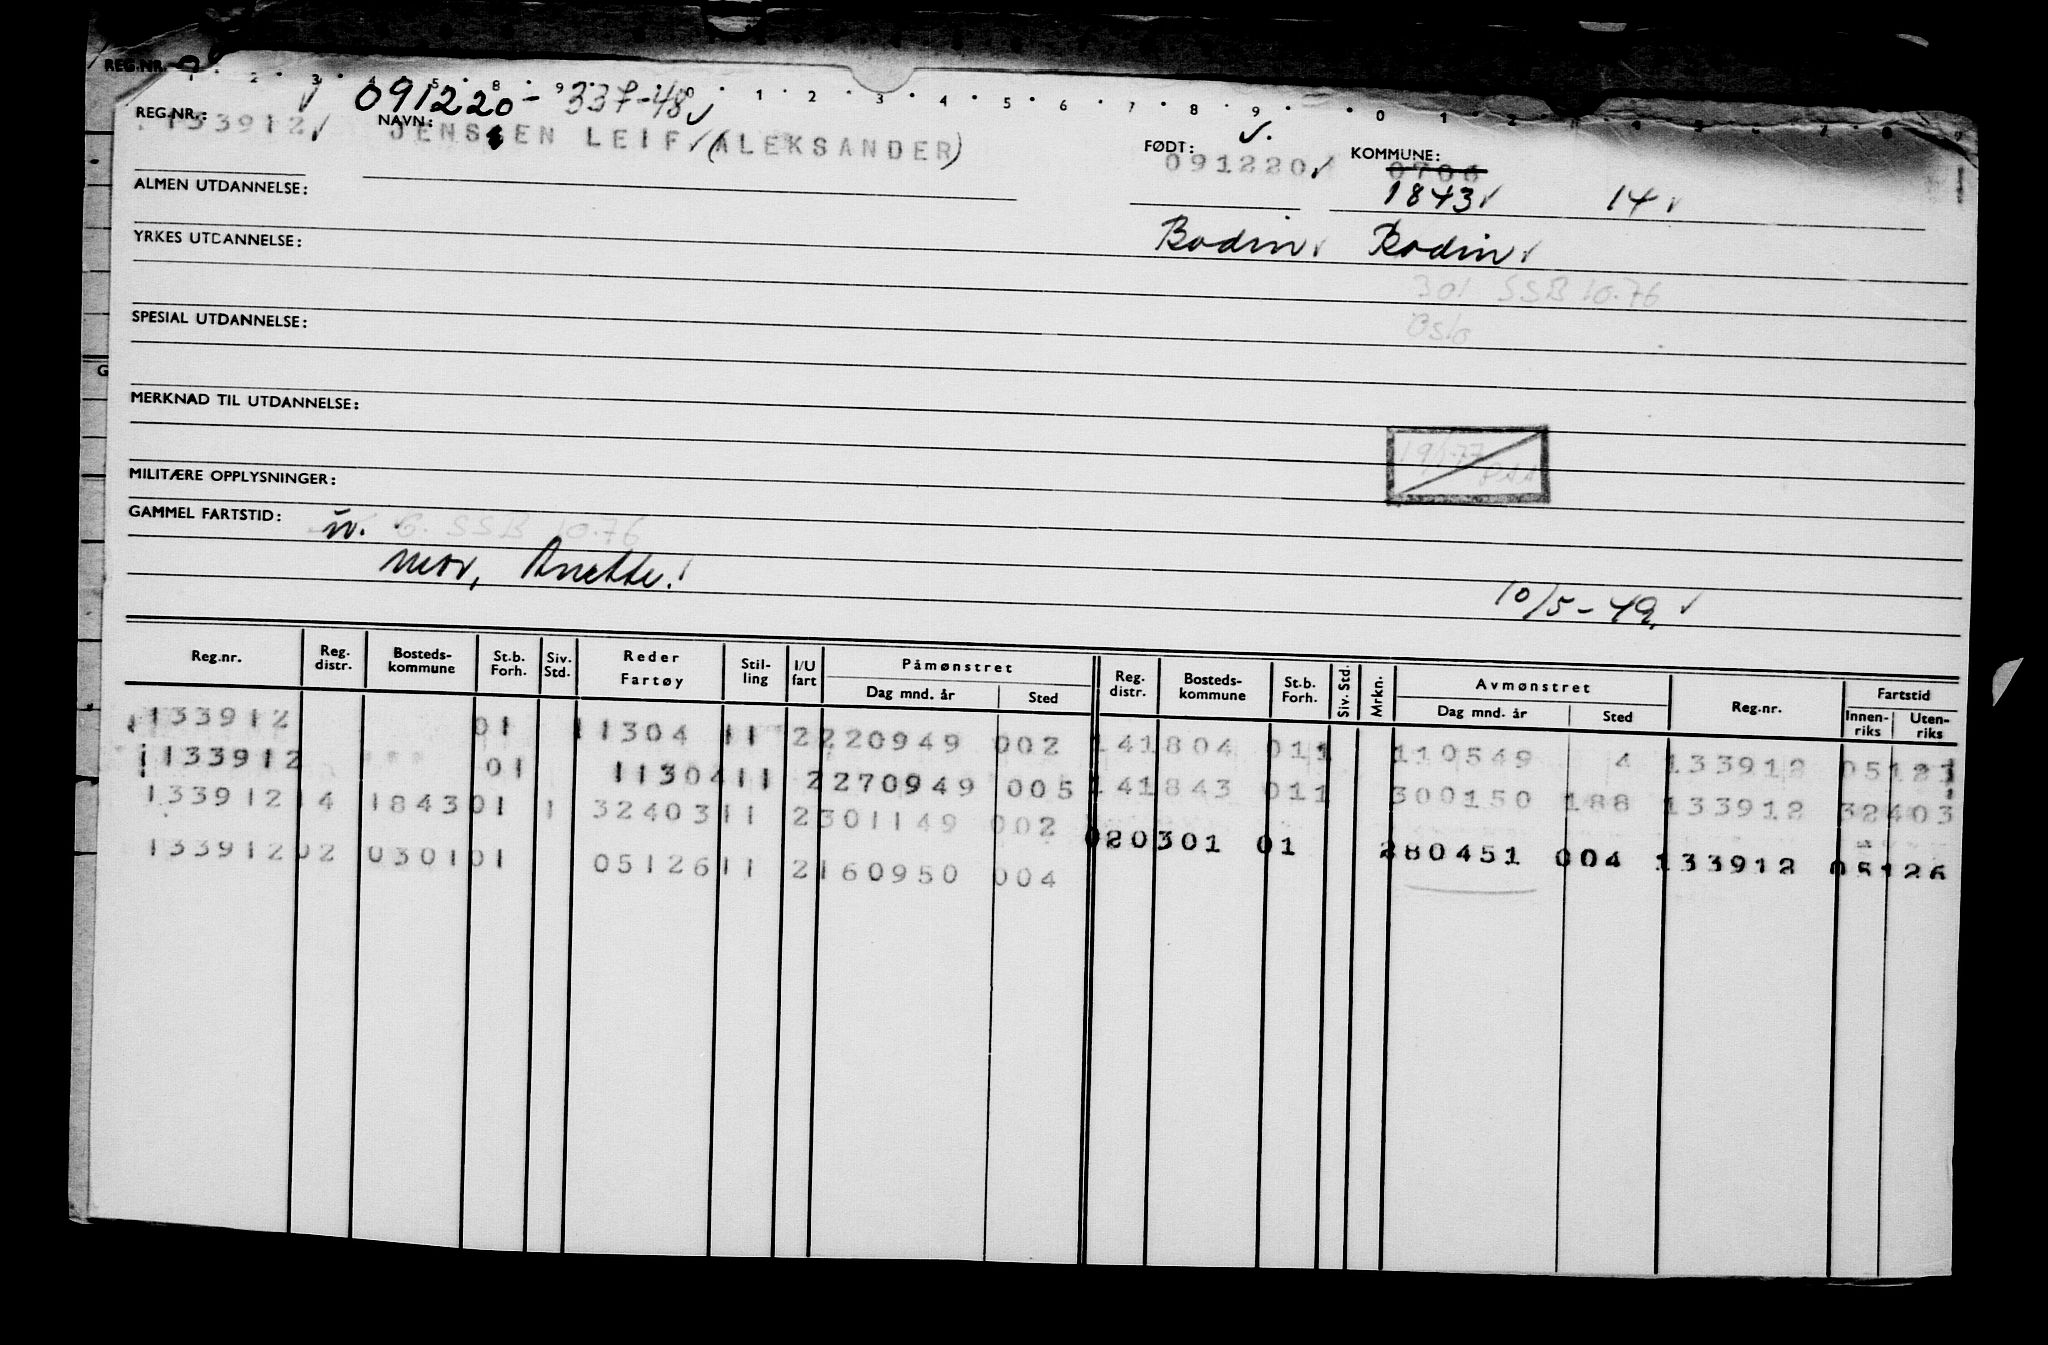 REG.NR.
1 2 3 4 5 8 9 0 1 2 3 4 5 6 7 8 9 0 1 2
091220-33748
REG.NR.: 133912 NAVN: JENSEN LEIF (ALEKSANDER) FØDT: 091220 KOMMUNE: 0706
1843 14
ALMEN UTDANNELSE:
Bodin Bodin
YRKES UTDANNELSE:
301 SSB 10.76
Oslo
SPESIAL UTDANNELSE:
MERKNAD TIL UTDANNELSE:
19/1-77
MILITÆRE OPPLYSNINGER:
GAMMEL FARTSTID: w. G. SSB 10.76
mor, Anette.
10/5-49.
Reg.nr. Reg. distr. Bosteds-kommune St.b. Forh. Siv. Std. Reder Fartøy Stil-ling I/U fart Påmønstret Dag mnd. år Sted Reg. distr. Bosteds-kommune St.b. Forh. Siv. Std. Mrkn. Avmønstret Dag mnd. år Sted Reg.nr. Fartstid Innen-riks Uten-riks
133912 01 11304 11 2 220949 002 14 1804 01 1 110549 4 133912 05123
133912 01 11304 11 2 270949 005 14 1843 01 1 300150 188 133912 32403
133912 14 1843 01 1 32403 11 2 301149 002 02 0301 01 280451 004 133912 05126
133912 02 0301 01 05126 11 2 160950 004